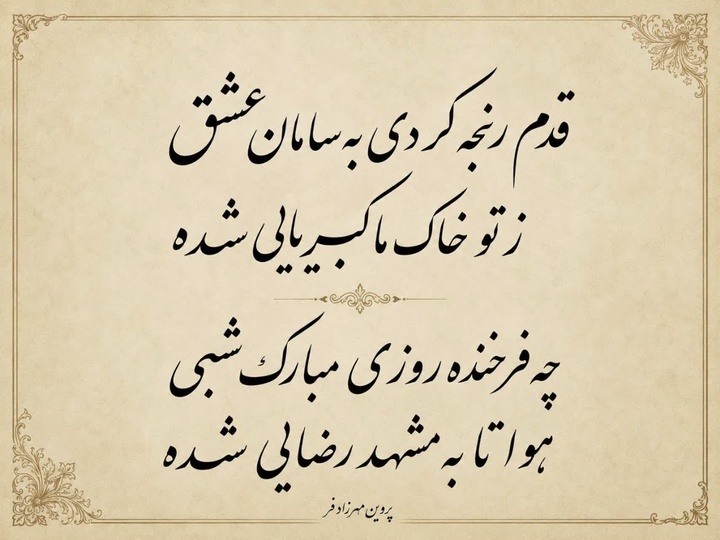 قدم رنجه کردی به سامان عشق
ز تو خاک ما کبریایی شده
چه فرخنده روزی مبارک شبی
هوا تا به مشهد رضایی شده
پروین مهرزادفر